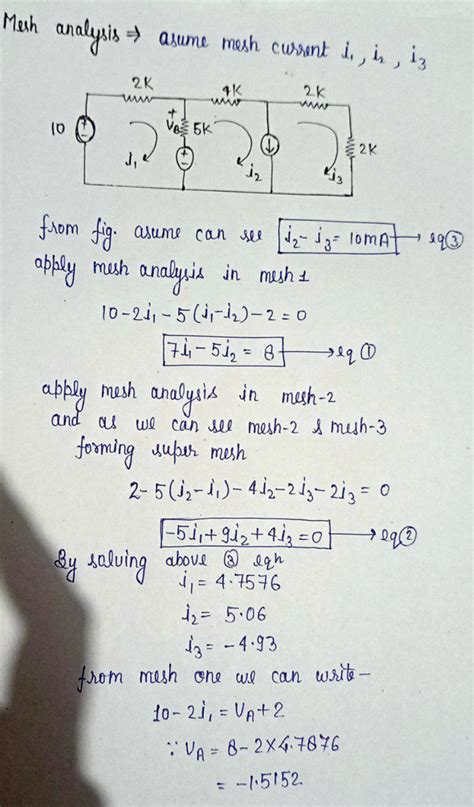 Mesh analysis ⇒ asume mesh current i₁, i₂, i₃
2K 4K 2K
10 + V_B 5K 2K
i₁ i₂ i₃
from fig. asume can see i₂ - i₃ = 10mA → eq③
apply mesh analysis in mesh 1
10-2i₁-5(i₁-i₂)-2=0
7i₁-5i₂ = 8 → eq①
apply mesh analysis in mesh-2
and as we can see mesh-2 & mesh-3
forming super mesh
2-5(i₂-i₁)-4i₂-2i₃-2i₃ = 0
-5i₁+9i₂+4i₃=0 → eq②
By solving above ③ eqn
i₁ = 4.7576
i₂ = 5.06
i₃ = -4.93
from mesh one we can write-
10-2i₁ = V_A+2
∵ V_A = 8-2×4.7876
= -1.5152